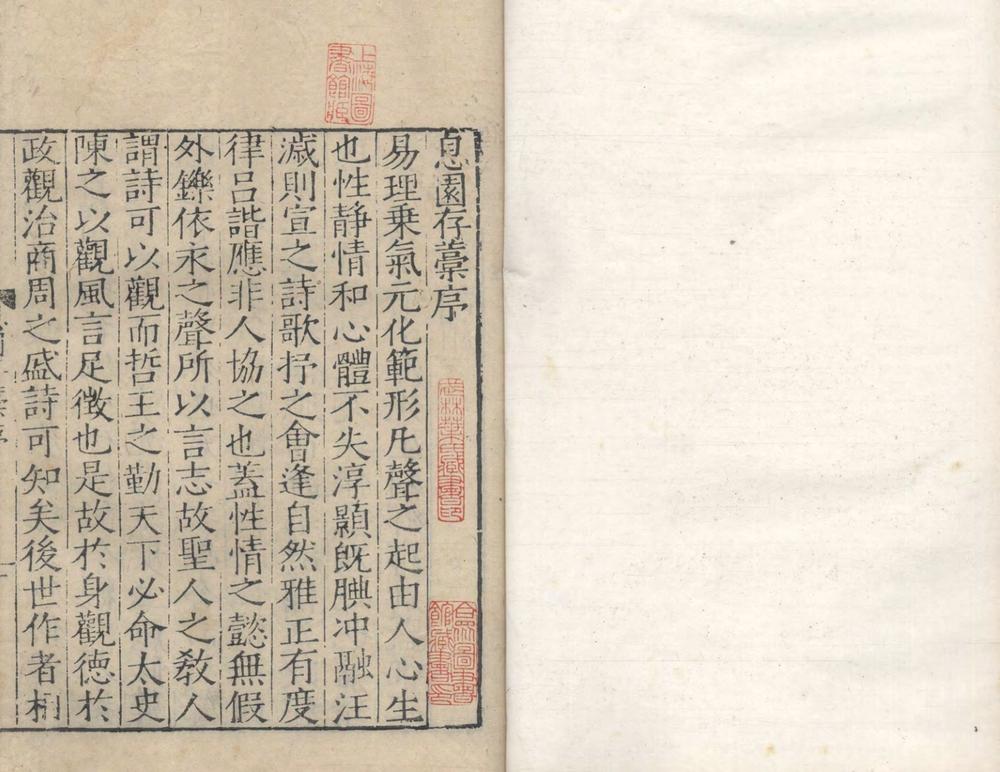 息園存藁序
易理乗氣元化範形凡聲之起由人心生
也性静情和心體不失淳顥既腆冲融汪
濊則宣之詩歌抒之會逢自然雅正有度
律呂諧應非人協之也蓋性情之懿無假
外鑠依永之聲所以言志故聖人之敎人
謂詩可以觀而哲王之勤天下必命太史
陳之以觀風言足徴也是故於身觀德於
政觀治商周之盛詩可知矣後世作者
上海圖書館藏
武林葉氏藏書印
合眾圖書館藏書印